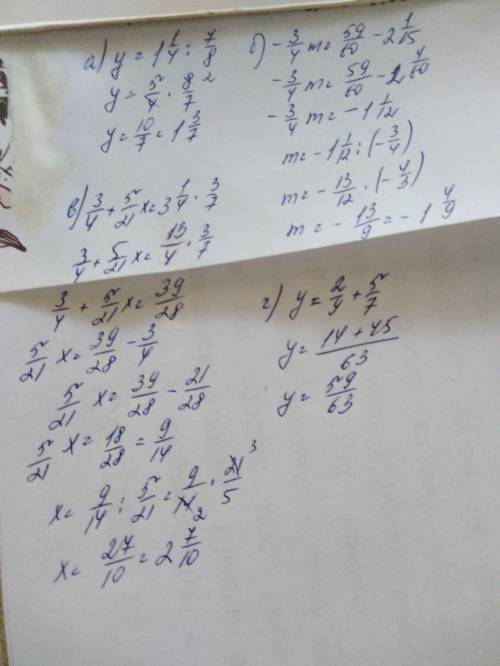 а) y = 1 1/4 : 7/8
y = 5/4 · 8/7 ²
y = 10/7 = 1 3/7
б) - 3/4 m = 59/60 - 2 1/15
- 3/4 m = 59/60 - 2 4/60
- 3/4 m = - 1 1/12
m = - 1 1/12 : (- 3/4)
m = - 13/12 · (- 4/3)
m = - 13/9 = - 1 4/9
в) 3/4 + 5/21 x = 3 1/4 · 3/7
3/4 + 5/21 x = 13/4 · 3/7
3/4 + 5/21 x = 39/28
5/21 x = 39/28 - 3/4
5/21 x = 39/28 - 21/28
5/21 x = 18/28 = 9/14
x = 9/14 : 5/21 = 9/14 ₂ · 21/5 ³
x = 27/10 = 2 7/10
г) y = 2/9 + 5/7
y = 14 + 45/63
y = 59/63